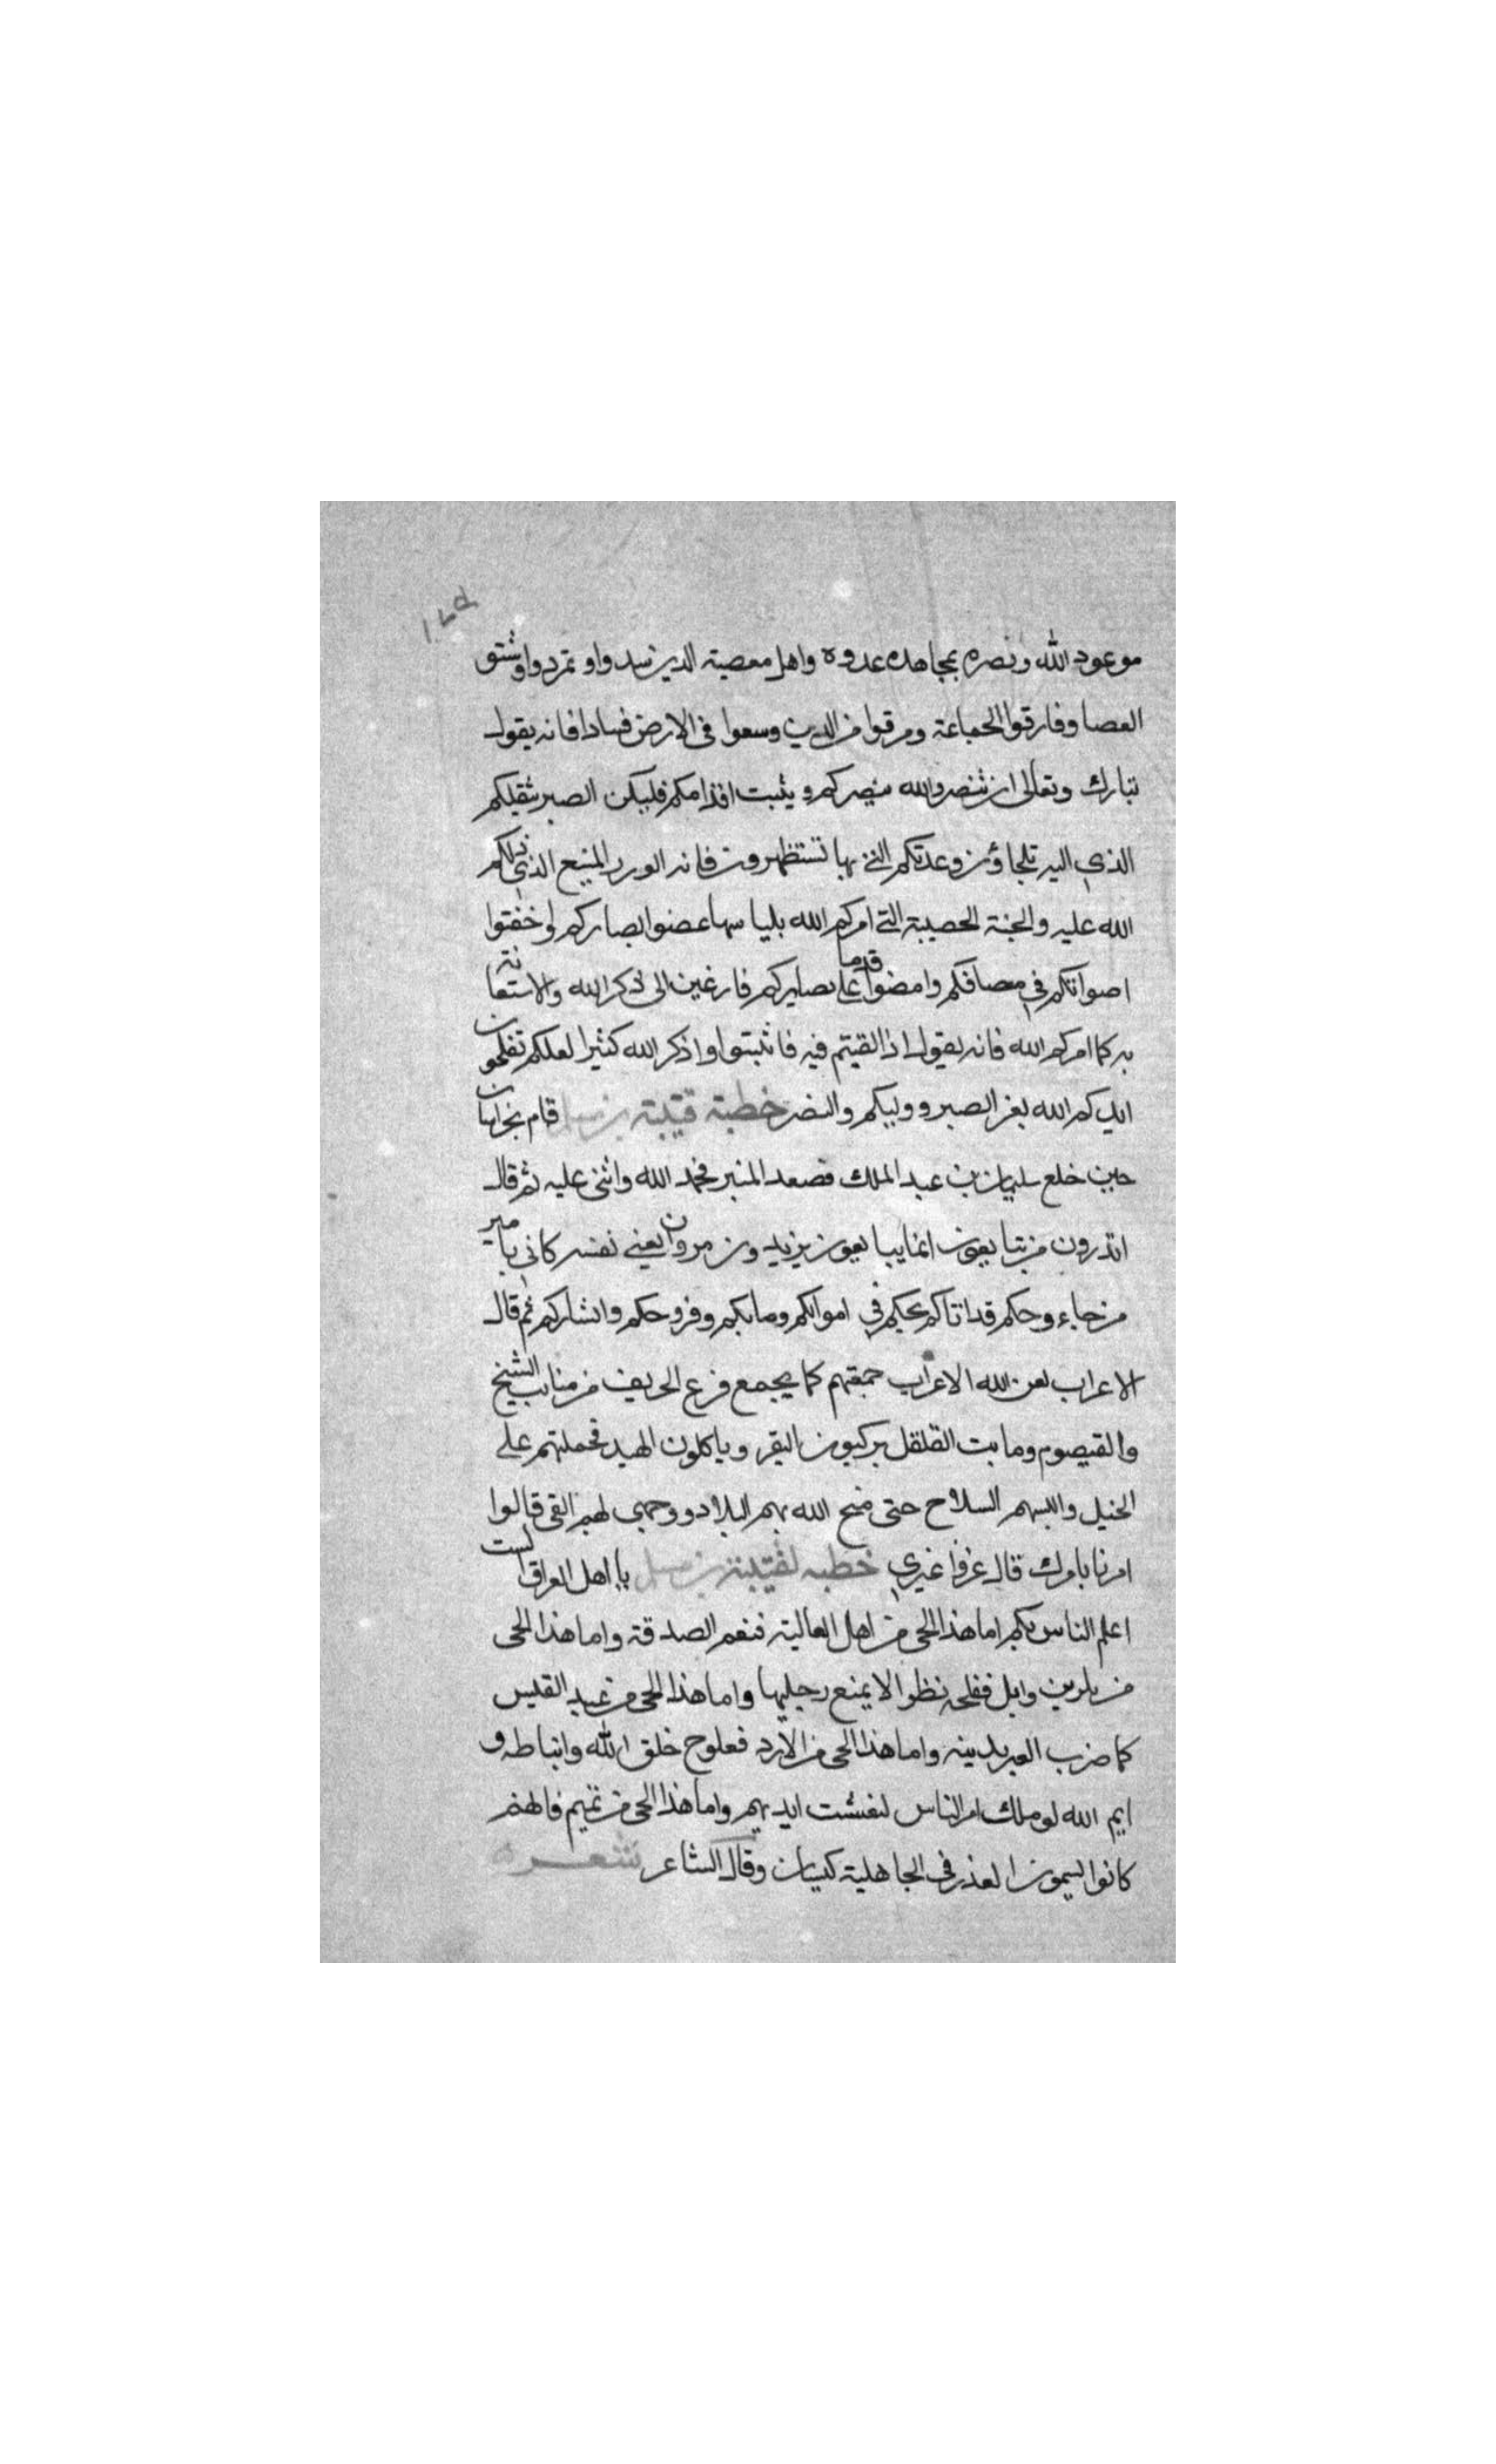 موعود الله ونصره بمجاهده عدوه واهل معصيته الذين سدواو تمردوا وشتو
العصا وفارقوا الجماعة ومرقوا من الدين وسعوا فى الارض فسادا فانه يقول
تبارك وتعالى ان تنصروالله ينصركم ويثبت اقدامكم فليكن الصبر ثقيلكم
الذي اليه تلجاؤن وعدتكم التي بها تستظهرون فانه الورر المنيع الذي دلكم
الله عليه والجنة الحصيبة التي امركم الله بلباسها عضوا ابصاركم واخفتوا
اصواتكم في مصافكم وامضوا قدما على بصايركم فارغين الى ذكر الله والاستعانة
به كما امركم الله فانه يقول اذا لقيتم فيه فاثبتوا واذكر الله كثيرا لعلكم تفلحون
ايدكم الله بعز الصبر ووليكم والنصر خطبة قتيبة بن مسلم قام بخراسان
حين خلع سليمان بن عبد الملك فصعد المنبر فحمد الله واثنى عليه ثم قال
اتدرون من تبايعون انما يبايعون يزيد بن مروان يعني نفسه كاني بامير
من جاء وحكم قد اتاكم يحكم في اموالكم ومايكم وفروجكم وابشاركم ثم قال
الاعراب لعن الله الاعراب جمعتهم كما يجمع قزع الخريف من منابت الشيخ
والقيصوم ومابت القلقل يركبون البقر وياكلون الهبيد فحملتهم على
الخيل والبسهم السلاح حتى منح الله بهم البلاد ووحمى لهم الفى قالوا
امرنا بامرك قال غروا غيري خطبه لقتيبة بن مسلم يا اهل العراق الست
اعلم الناس بكم اما هذا الحى من اهل العالية فنعم الصدقة واما هذا الحى
من بكر بن وايل فعلجه نظرا لا يمنع رجليها واما هذا الحى من عبد القيس
كما ضرب العير بذنبه واما هذا الحى من الازد فعلوج خلق الله وانباطه و
ايم الله لو ملك امر الناس لنقشت ايديهم واما هذا الحى من تميم فانهم
كانوا يسمون الغدر فى الجاهلية كيسان وقال الشاعر شعره